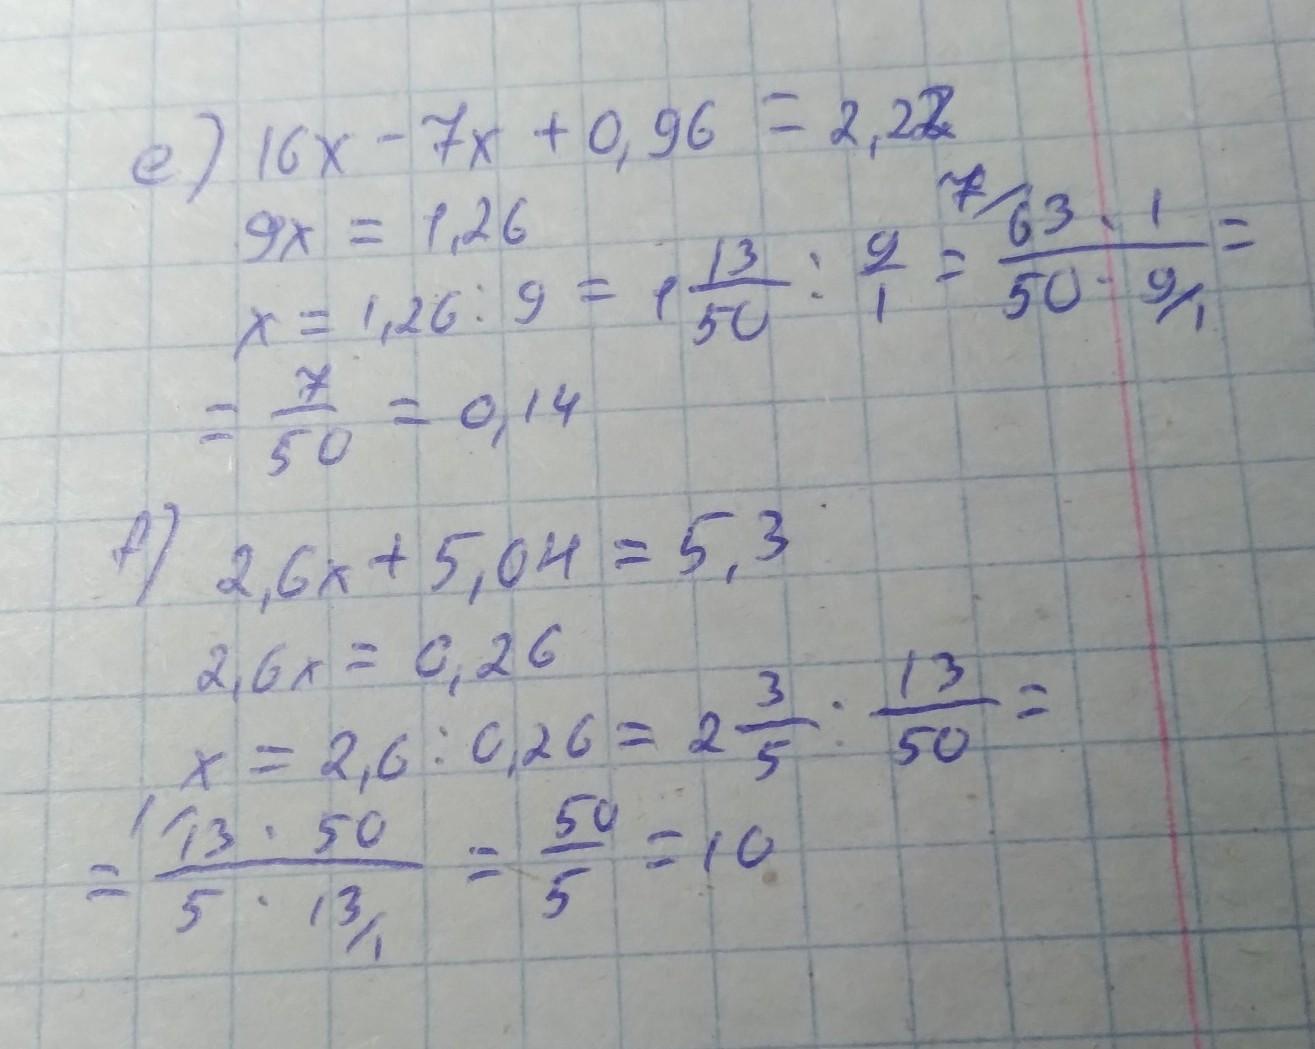 e) 16x - 7x + 0,96 = 2,22
9x = 1,26
x = 1,26 : 9 = 1 13/50 : 9/1 = 7/63 · 1 / 50 · 9/1 =
= 7/50 = 0,14
f) 2,6x + 5,04 = 5,3
2,6x = 0,26
x = 2,6 : 0,26 = 2 3/5 : 13/50 =
= 1/13 · 50 / 5 · 13/1 = 50/5 = 10